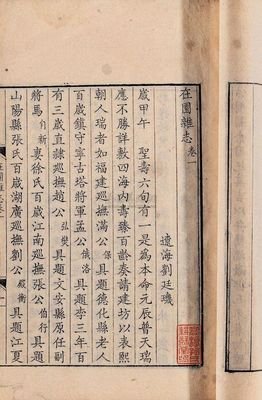 在園雜志卷一
遼海劉廷璣
歲甲午　聖壽六旬有一是爲本命元辰普天瑞
應不勝詳數四海內壽臻百齡奏請建坊以表熙
朝人瑞者如福建巡撫滿公保具題德化縣老人
百歲鎮守寧古塔將軍孟公俄洛具題李三年百
有三歲直隸巡撫趙公弘燮具題文安縣原任副
將馬自新妻徐氏百歲江南巡撫張公伯行具題
山陽縣張氏百歲湖廣巡撫劉公殿衡具題江夏